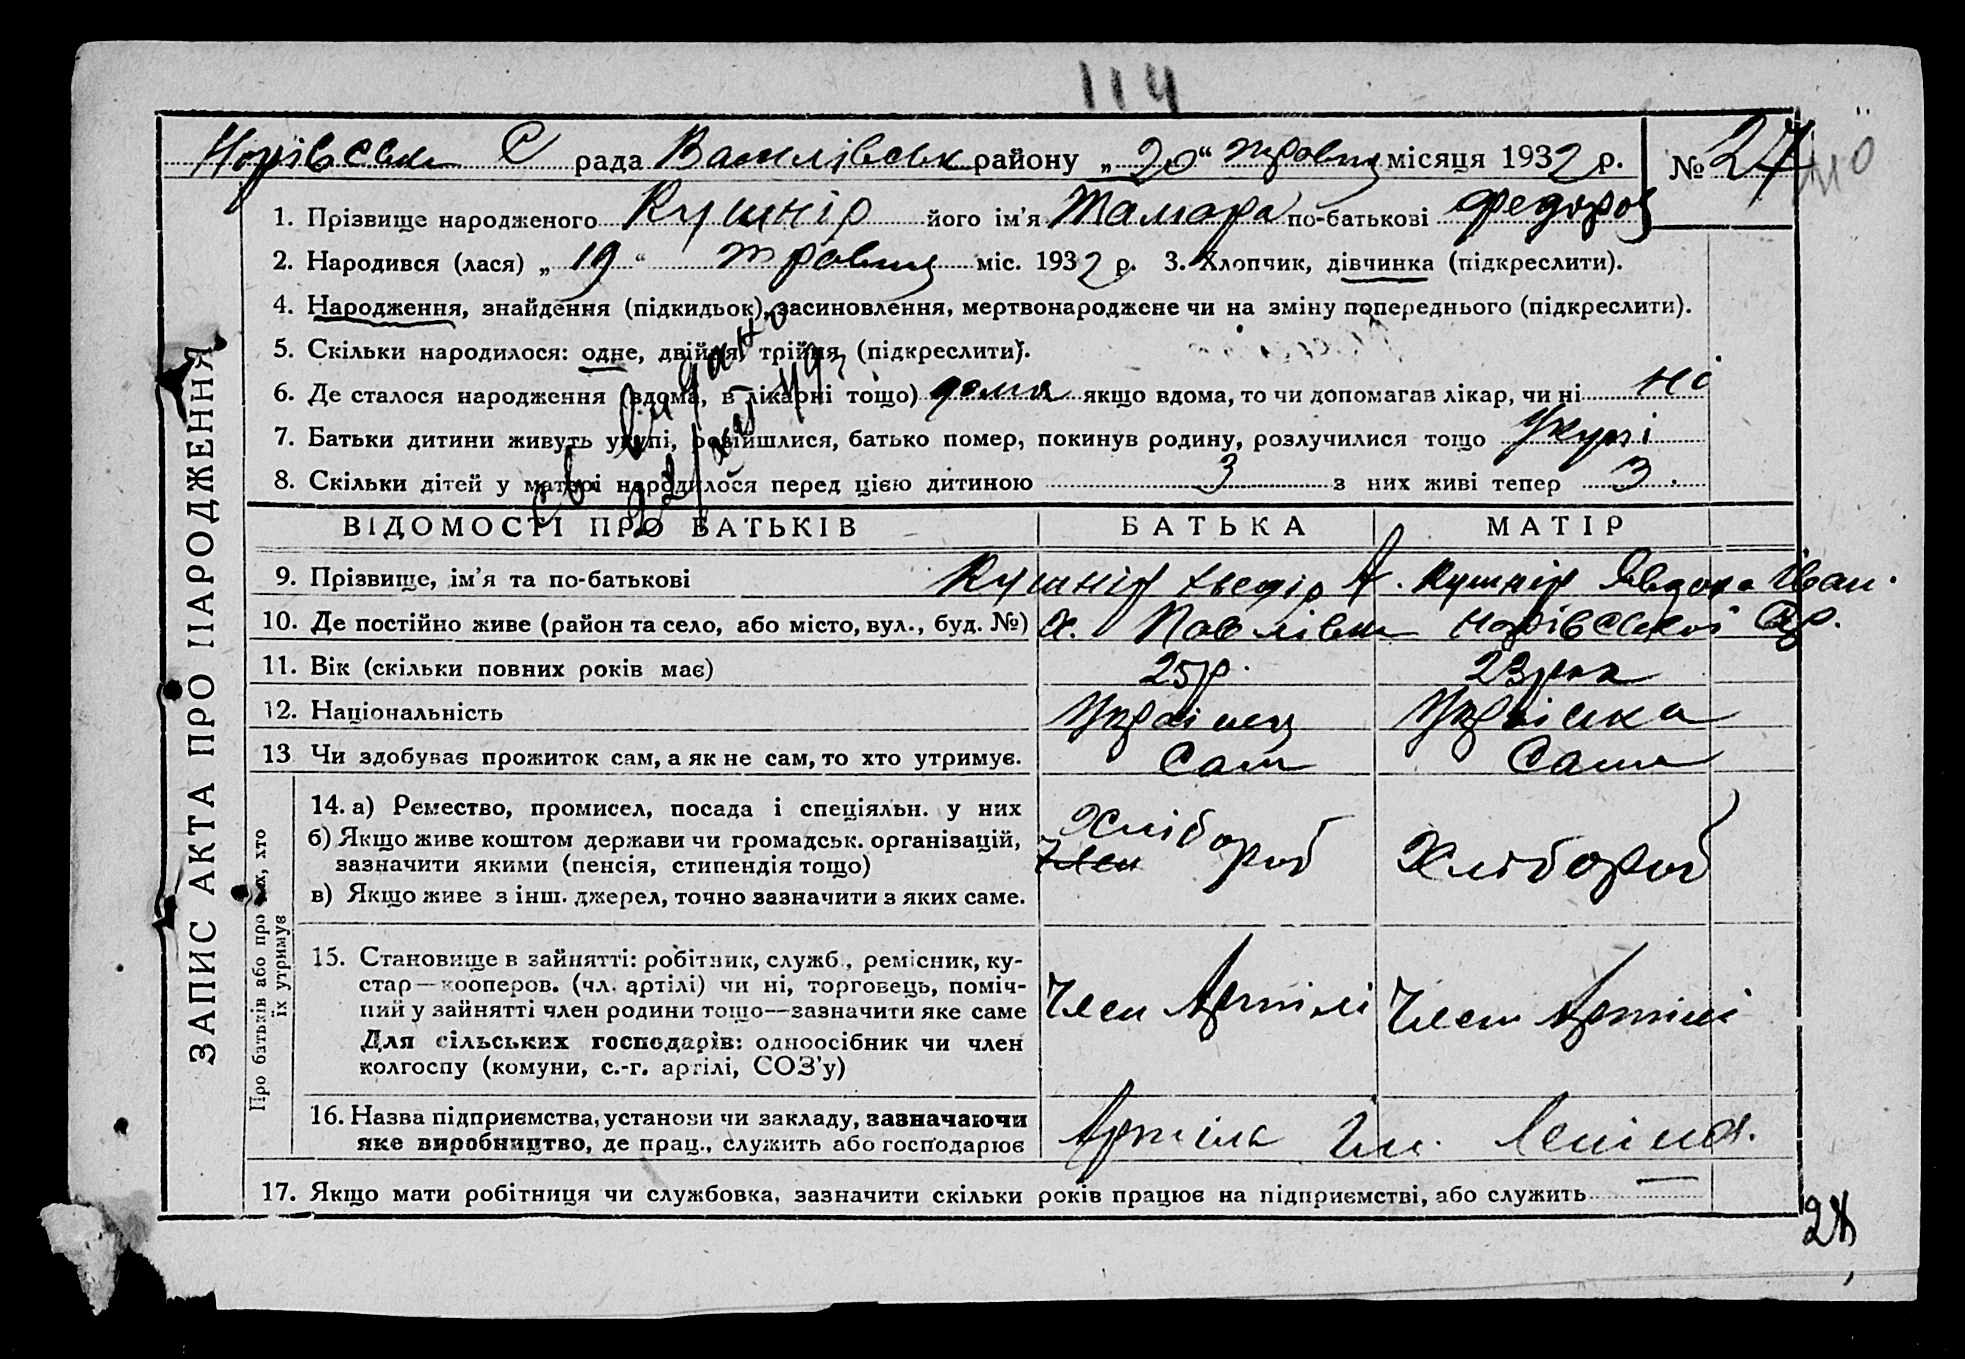 114
С рада Василівськ району „20“ травня місяця 1932 р. № 27
1. Прізвище народженого Кушнір його ім’я Тамара по-батькові Федоров
2. Народився (лася) „19“ травня міс. 1932 р. 3. Хлопчик, дівчинка (підкреслити).
4. Народження, знайдення (підкидьок), засиновлення, мертвонароджене чи на зміну попереднього (підкреслити).
5. Скільки народилося: одне, двійня, трійня, (підкреслити).
6. Де сталося народження (вдома, в лікарні тощо) дома якщо вдома, то чи допомагав лікар, чи ні ні
7. Батьки дитини живуть укупі, розійшлися, батько помер, покинув родину, розлучилися тощо Укупі
8. Скільки дітей у матері народилося перед цією дитиною 3 з них живі тепер 3.
ВІДОМОСТІ ПРО БАТЬКІВ БАТЬКА МАТІР
9. Прізвище, ім’я та по-батькові Кушнір А. Кушнір Явдоха Іван.
10. Де постійно живе (район та село, або місто, вул., буд. №) х. Павлівка
11. Вік (скільки повних років має) 25 р. 23 рок
12. Національність Українец Українка
13 Чи здобуває прожиток сам, а як не сам, то хто утримує. Сам Сама
Про батьків або про тих, хто їх утримує
14. а) Ремество, промисел, посада і спеціяльн. у них
б) Якщо живе коштом держави чи громадськ. організацій,
зазначити якими (пенсія, стипендія тощо)
в) Якщо живе з інш. джерел, точно зазначити з яких саме.
Хлібороб Хлібороб
15. Становище в зайнятті: робітник, служб., ремісник, ку-
стар—кооперов. (чл. артілі) чи ні, торговець, поміч-
ний у зайнятті член родини тощо—зазначити яке саме
Для сільських господарів: одноосібник чи член
колгоспу (комуни, с.-г. артілі, СОЗ’у)
Член Артілі Член Артілі
16. Назва підприємства, установи чи закладу, зазначаючи
яке виробництво, де прац., служить або господарює
Артіль Ім. Леніна.
17. Якщо мати робітниця чи службовка, зазначити скільки років працює на підприємстві, або служить —
ЗАПИС АКТА ПРО НАРОДЖЕННЯ